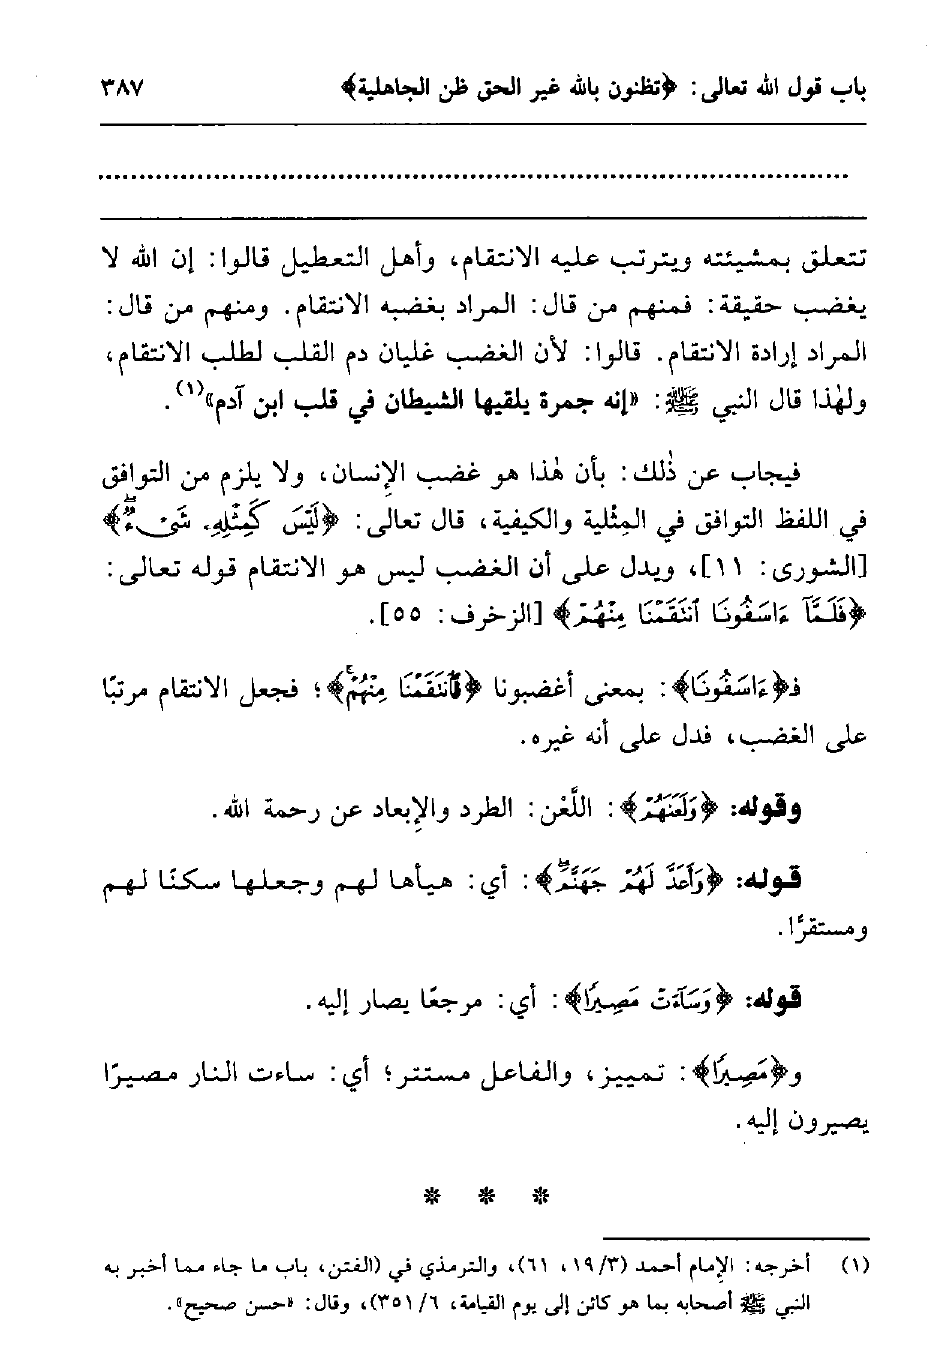 باب قول الله تعالى: ﴿تظنون بالله غير الحق ظن الجاهلية﴾ ٣٨٧
تتعلق بمشيئته ويترتب عليه الانتقام، وأهل التعطيل قالوا: إن الله لا
يغضب حقيقة: فمنهم من قال: المراد بغضبه الانتقام. ومنهم من قال:
المراد إرادة الانتقام. قالوا: لأن الغضب غليان دم القلب لطلب الانتقام،
ولهٰذا قال النبي ﷺ: «إنه جمرة يلقيها الشيطان في قلب ابن آدم»(١).
فيجاب عن ذٰلك: بأن هٰذا هو غضب الإنسان، ولا يلزم من التوافق
في اللفظ التوافق في المِثْلية والكيفية، قال تعالى: ﴿لَيْسَ كَمِثْلِهِۦ شَيْءٌۖ﴾
[الشورى: ١١]، ويدل على أن الغضب ليس هو الانتقام قوله تعالى:
﴿فَلَمَّآ ءَاسَفُونَا ٱنتَقَمْنَا مِنْهُمْ﴾ [الزخرف: ٥٥].
فـ﴿ءَاسَفُونَا﴾: بمعنى أغضبونا ﴿فَٱنتَقَمْنَا مِنْهُمْۚ﴾؛ فجعل الانتقام مرتبًا
على الغضب، فدل على أنه غيره.
وقوله: ﴿وَلَعَنَهُمْ﴾: اللَّعْن: الطرد والإبعاد عن رحمة الله.
قوله: ﴿وَأَعَدَّ لَهُمْ جَهَنَّمَۖ﴾: أي: هيأها لهم وجعلها سكنًا لهم
ومستقرًا.
قوله: ﴿وَسَآءَتْ مَصِيرًا﴾: أي: مرجعًا يصار إليه.
و﴿مَصِيرًا﴾: تمييز، والفاعل مستتر؛ أي: ساءت النار مصيرًا
يصيرون إليه.
* * *
(١) أخرجه: الإمام أحمد (٣/ ١٩، ٦١)، والترمذي في (الفتن، باب ما جاء مما أخبر به
النبي ﷺ أصحابه بما هو كائن إلى يوم القيامة، ٦/ ٣٥١)، وقال: «حسن صحيح».